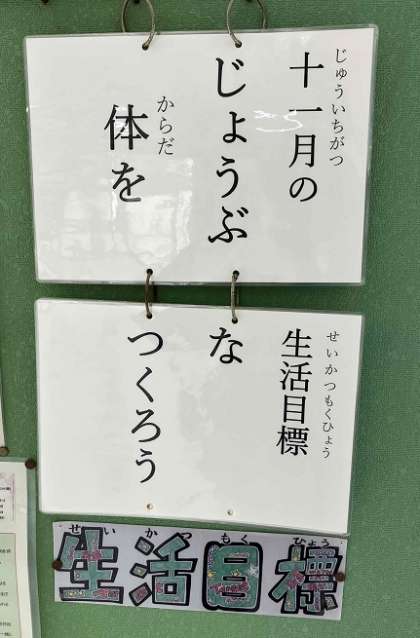 じゅういちがつ
十一月の
せいかつもくひょう
生活目標
じょうぶ
な
からだ
体を
つくろう
せいかつもくひょう
生活目標